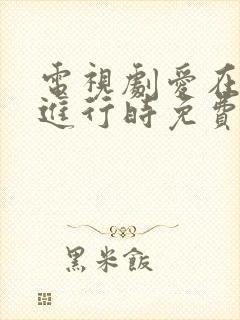 電視劇愛在
進行時免費
黑米飯